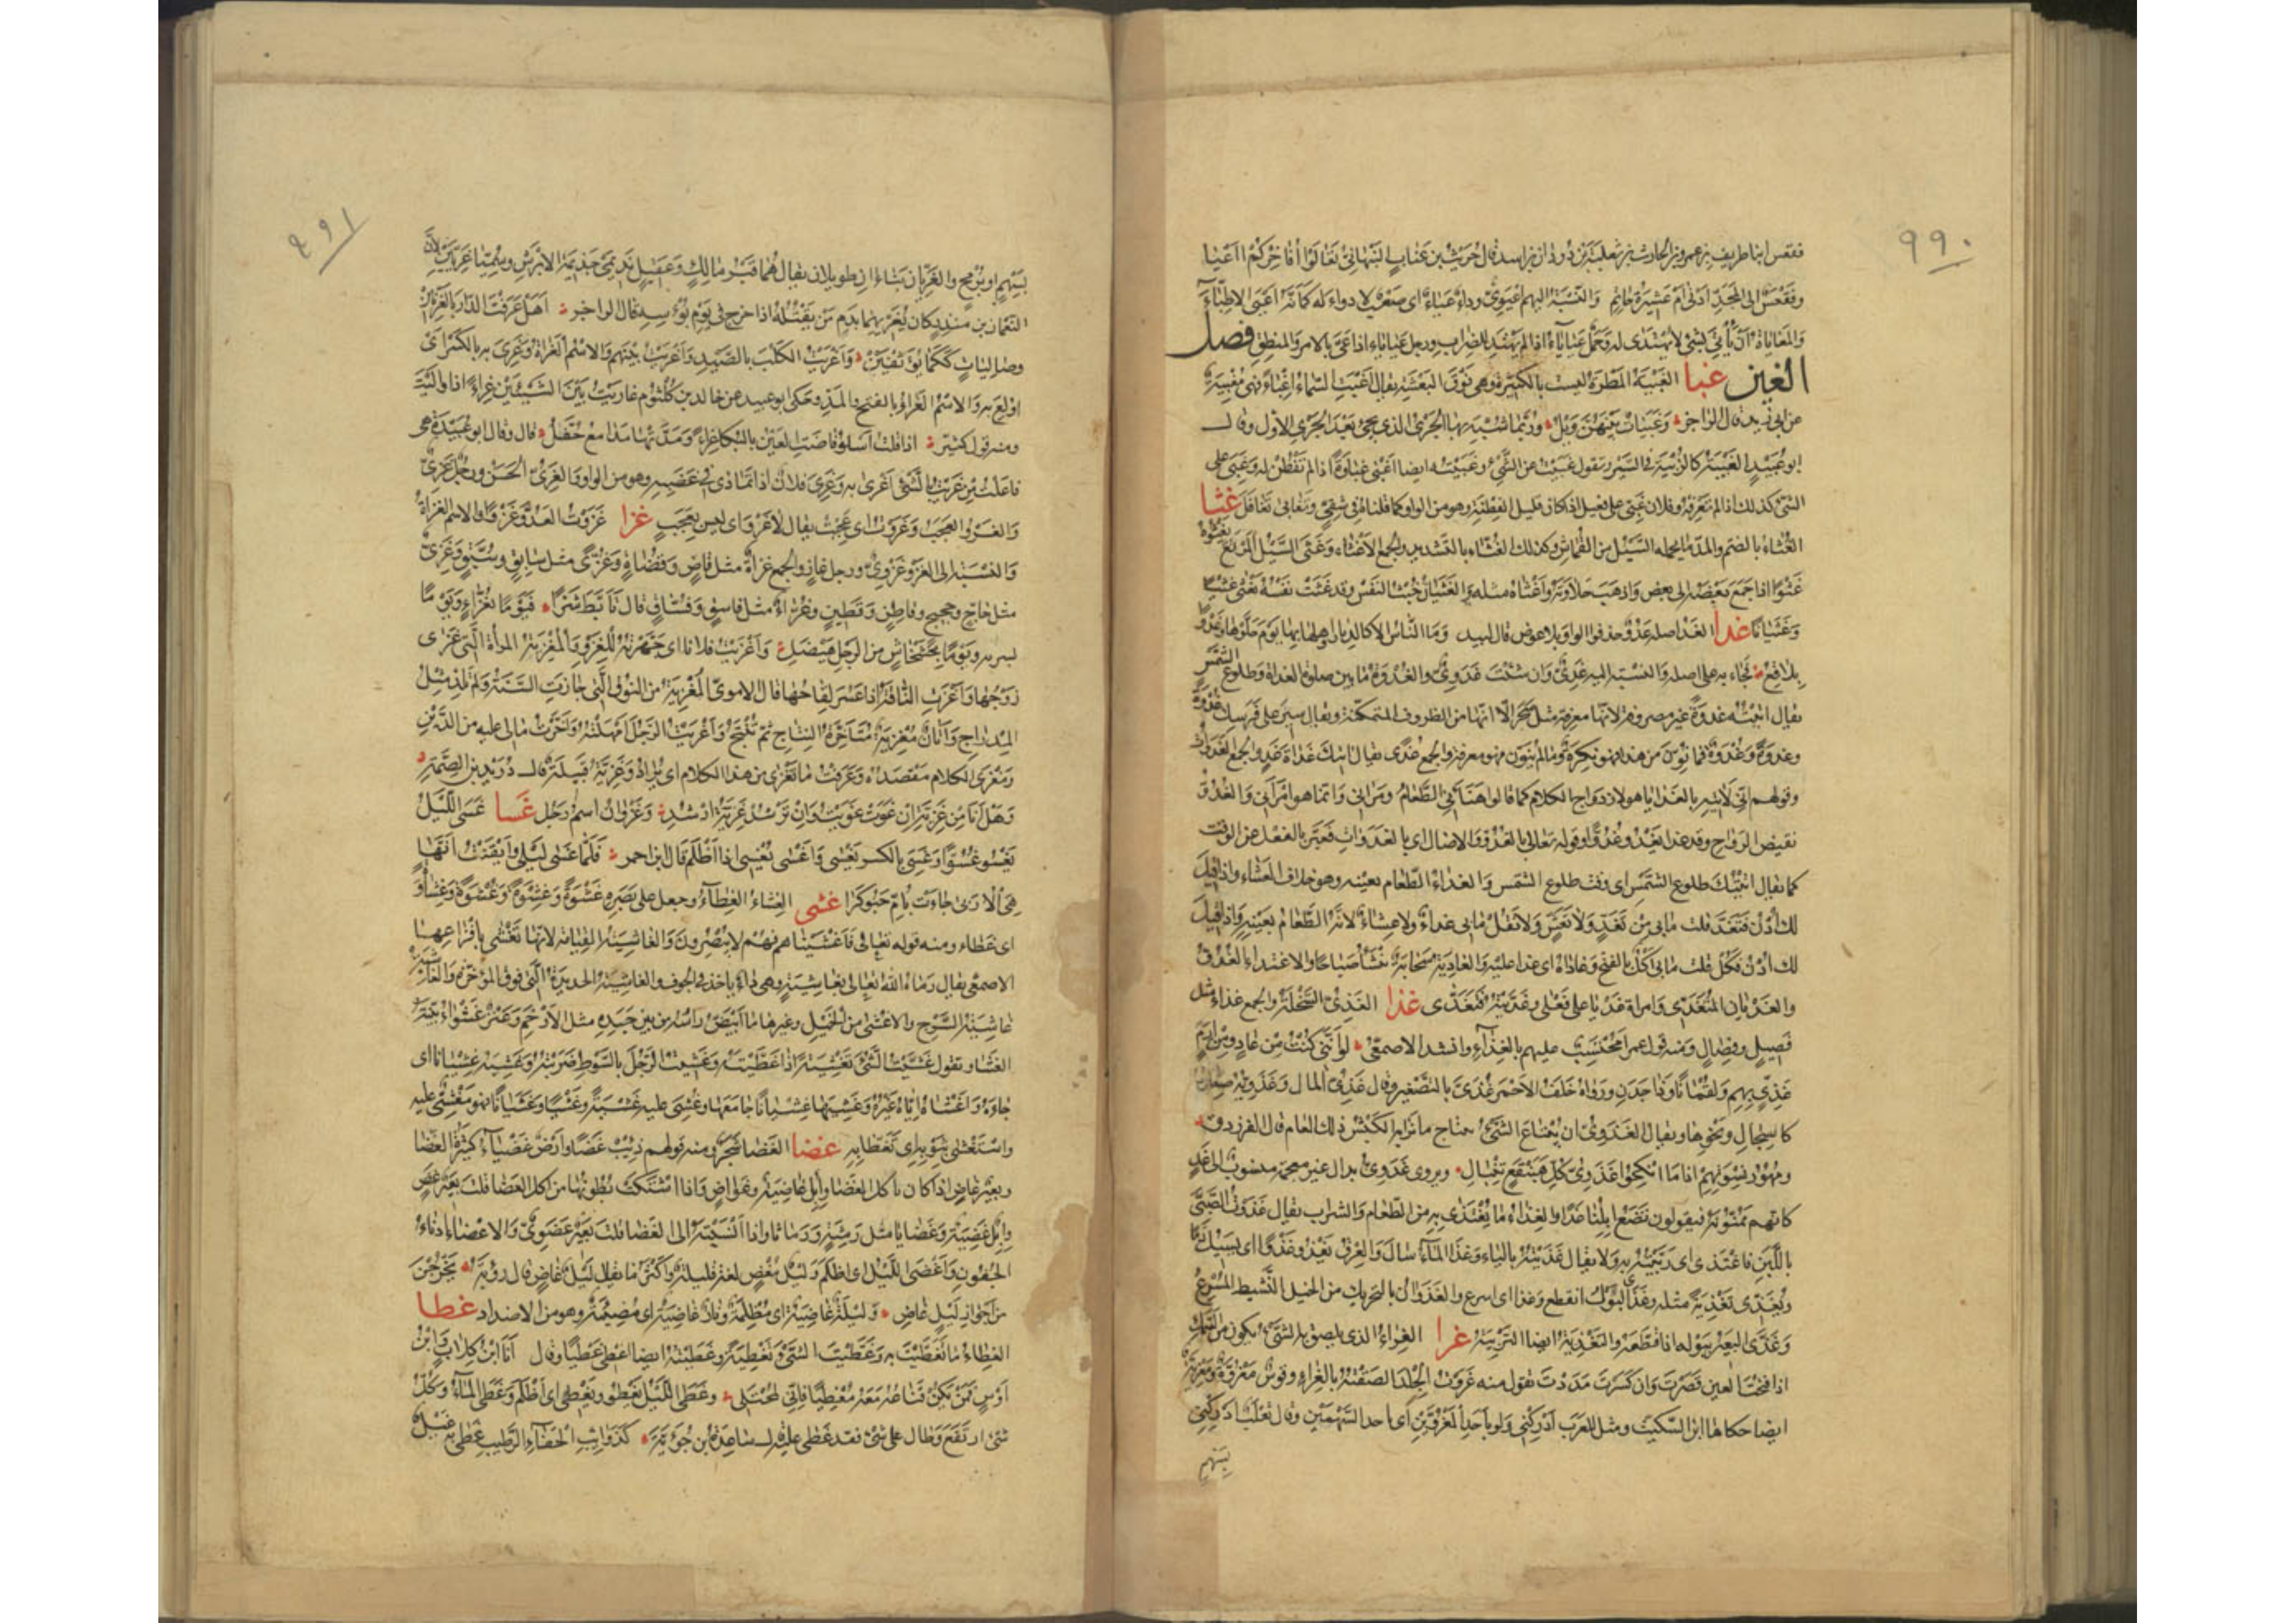 ٩٩٠
فقعس ابنا طريف بن عمرو بن الحارث بن ثعلبة بن دودان بن اسد قال حريث بن عناب النبهاني تعالوا أفاخركم ااعيا
وفقعس الى المجد ادنى ام عشيرة حاتم والنسبة اليهم اعيوي وداء عياء اى صعب لا دواء له كانه اعيى الاطباء
والمعاياة ان تأتي بشئ لا يهتدى له وجمل عياياء اذا لم يهتد للضراب ورجل عياياء اذا عي بالامر والمنطق فصل
الغين غبا الغبية المطرة ليست بالكثيرة وهي فوق البغشة يقال اغبت السماء اغباء فهي مغبية
عن ابي زيد قال الراجز وغبيات بينهن وبل وربما شبه بها الجري الذي يجئ بعد الجري الاول وقال
ابو عبيد الغبية كالوثبة في السير وتقول غبيت عن الشئ وغبيته ايضا اغبى غباوة اذا لم تفطن له وغبي علي
الشئ كذلك اذا لم تعرفه وفلان غبي على فعيل اذا كان قليل الفطنة وهو من الواو كما قلناه في شقي وتغابى تغافل غثا
الغثاء بالضم والمد ما يحمله السيل من القماش وكذلك الغثاء بالتشديد والجمع الاغثاء وغثى السيل المرتع يغثوه
غثوا اذا جمع بعضه الى بعض واذهب حلاوته واغثاه مثله والغثيان خبث النفس وقد غثت نفسه تغثي غثيا
وغثيانا غدا الغد اصله غدو حذفوا الواو بلا عوض قال لبيد وما الناس الا كالديار واهلها بها يوم حلوها وغدوا
بلاقع فجاء به على اصله والنسبة اليه غدي وان شئت غدوي والغدوة ما بين صلوة الغداة وطلوع الشمس
يقال اتيته غدوة غير مصروفة لانها معرفة مثل سحر الا انها من الظروف المتمكنة وتقول سير على فرسك غدوة
وغدوة وغدوة فما نون من هذا فهو نكرة وما لم ينون فهو معرفة والجمع غدى ويقال اتيتك غداة غد والجمع الغدوات
وقولهم اني لآتيه بالغدايا هو لازدواج الكلام كما قالوا هنأني الطعام ومرأني وانما هو امرأني والغدو
نقيض الرواح وقد غدا يغدو غدوا وقوله تعالى بالغدو والاصال اى بالغدوات فعبر بالفعل عن الوقت
كما يقال اتيتك طلوع الشمس اى وقت طلوع الشمس والغداء الطعام بعينه وهو خلاف العشاء واذا قيل
لك ادن فتغد قلت ما بي من تغد ولا تعش ولا تقل ما بي غداء ولا عشاء لانه الطعام بعينه واذا قيل
لك ادن فكل قلت ما بي اكل بالفتح وغاداه اى غدا عليه والغادية سحابة تنشأ صباحا والاغتداء الغدو
والغديان المتغدي وامراة غديا على فعلى وغديته فتغدى غذا الغذي السخلة والجمع غذاء مثل
فصيل وفصال ومنه قول عمر امحتسب عليهم بالغذاء وانشد الاصمعي لو انني كنت من عاد ومن ارم
غذي بهم ولقمانا وذا جدن ورواه خلف الاحمر غذي بالتصغير وقال غذي المال وغذويه صغاره
كالسخال ونحوها ويقال الغذوي ان يبتاع الشئ بنتاج ما نزا به الكبش ذلك العام قال الفرزدق
ومهور نسوتهم اذا ما انكحوا غذوي كل هبنقع تنبال ويروى غدوي بدال غير معجمة منسوب الى غد
كانهم يمنونه فيقولون تضع ابلنا غدا والغذاء ما يغتذى به من الطعام والشراب يقال غذوت الصبي
باللبن فاغتذى اى ربيته به ولا يقال غذيته بالياء وغذا الماء سال والعرق يغذو غذوا اى يسيل دما
ويغذي تغذية مثله وغذا البول انقطع وغذا اى اسرع والغذوان بالتحريك من الخيل النشيط المسرع
وغذى البعير ببوله اذا قطعه والتغذية ايضا التربية غرا الغراء الذي يلصق به الشئ يكون من السمك
اذا فتحت العين قصرت وان كسرت مددت تقول منه غروت الجلد الصقته بالغراء وقوس مغروة ومغرية
ايضا حكاها ابن السكيت ومثل للعرب ادركني ولو باحد المغروين اى باحد السهمين وقال ثعلب ادركني
بسهم
٩٩١
بسهم او برمح والغريان بناءان طويلان يقال هما قبر مالك وعقيل نديمي جذيمة الابرش وسميا غريين لان
النعمان بن منذر كان يغريهما بدم من يقتله اذا خرج في يوم بؤسه قال الراجز اهل عرفت الدار بالغريين
وصاليات ككما يؤثفين واغريت الكلب بالصيد واغريت بينهم والاسم الغراة وغري به بالكسر اى
اولع به والاسم الغراء بالفتح والمد وحكى ابو عبيد عن خالد بن كلثوم غاريت بين الشيئين غراء اذا واليت
ومنه قول كثير اذا قلت اسلو فاضت العين بالبكا غراء ومدتها مدامع حفل قال وقال ابو عبيدة هي
فاعلت من غريت بالشئ اغرى به وغري فلان اذا تمادى في غضبه وهو من الواو والغري الحسن ورجل غري
والغرو العجب وغروت اى عجبت يقال لا غرو اى ليس بعجب غزا غزوت العدو غزوا والاسم الغزاة
والنسبة الى الغزو غزوي ورجل غاز والجمع غزاة مثل قاض وقضاة وغزى مثل سابق وسبق وغزي
مثل حاج وحجيج وقاطن وقطين وغزاء مثل فاسق وفساق قال تأبط شرا فيوما بغزاء ويوما
بسرية ويوما بخشخاش من الرجل هيضل واغزيت فلانا اى جهزته للغزو والمغزية المرأة التي غزى
زوجها واغزت الناقة اذا عسر لقاحها قال الاموي المغزية من النوق التي جازت السنة ولم تلد مثل
المدراج واتان مغزية متأخرة النتاج ثم تنتج واغزيت الرجل امهلته واخرت مالي عليه من الدين
ومغزى الكلام مقصده وعرفت ما يغزى من هذا الكلام اى يراد وغزية قبيلة قال دريد بن الصمة
وهل انا من غزية ان غوت غويت وان ترشد غزية ارشد وغزوان اسم رجل غسا غسى الليل
يغسو غسوا وغسي بالكسر يغسى واغسى يغسي اذا اظلم قال ابن احمر فلما غسى ليلي وايقنت انها
هي الاربى جاءت بأم حبوكرا غشى الغشاء الغطاء وجعل على بصره غشوة وغشوة وغشوة وغشاوة
اى غطاء ومنه قوله تعالى فاغشيناهم فهم لا يبصرون والغاشية القيامة لانها تغشى بافزاعها
الاصمعي يقال رماه الله تعالى بغاشية وهي داء ياخذ في الجوف والغاشية الحديدة التي فوق المؤخرة والغاشية
غاشية السرج والاغشى من الخيل وغيرها ما ابيض راسه من بين جسده مثل الارخم وعنز غشواء بينة
الغشا وتقول غشيت الشئ تغشية اذا غطيته وغشيت الرجل بالسوط ضربته وغشيه غشيانا اى
جاءه واغشاه اياه غيره وغشيها غشيانا جامعها وغشي عليه غشية وغشيا وغشيانا فهو مغشي عليه
واستغشى بثوبه اى تغطى به غضا الغضا شجر ومنه قولهم ذئب غضا وارض غضياء كثيرة الغضا
وبعير غاض اذا كان يأكل الغضا وابل غاضية وغواض فاذا اشتكت بطونها من اكل الغضا قلت بعير غض
وابل غضية وغضايا مثل رمثة ورماثا واذا نسبته الى الغضا قلت بعير غضوي والاغضاء ادناء
الجفون واغضى الليل اى اظلم وليل مغض لغة قليلة واكثر ما يقال ليل غاض قال رؤبة يخرجن
من اجواز ليل غاض وليلة غاضية اى مظلمة ونار غاضية اى مضيئة وهو من الاضداد غطا
الغطاء ما تغطيت به وغطيت الشئ تغطية وغطيته ايضا اغطي غطيا وقال انا ابن كلاب وابن
اوس فمن يكن قناعه مغطيا فاني لمجتلى وغطى الليل يغطو ويغطي اى اظلم وغطى الماء وكل
شئ ارتفع وطال على شئ فقد غطى عليه قال ساعدة بن جؤية كذوائب الحفاء الرطيب غطى به غيل